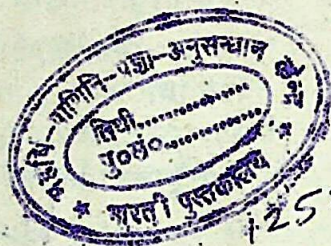 महर्षि-पाणिनि-प्रज्ञा-अनुसन्धान केन्द्र
तिथी................
पु०सं०................
* भारती पुस्तकालय *
125